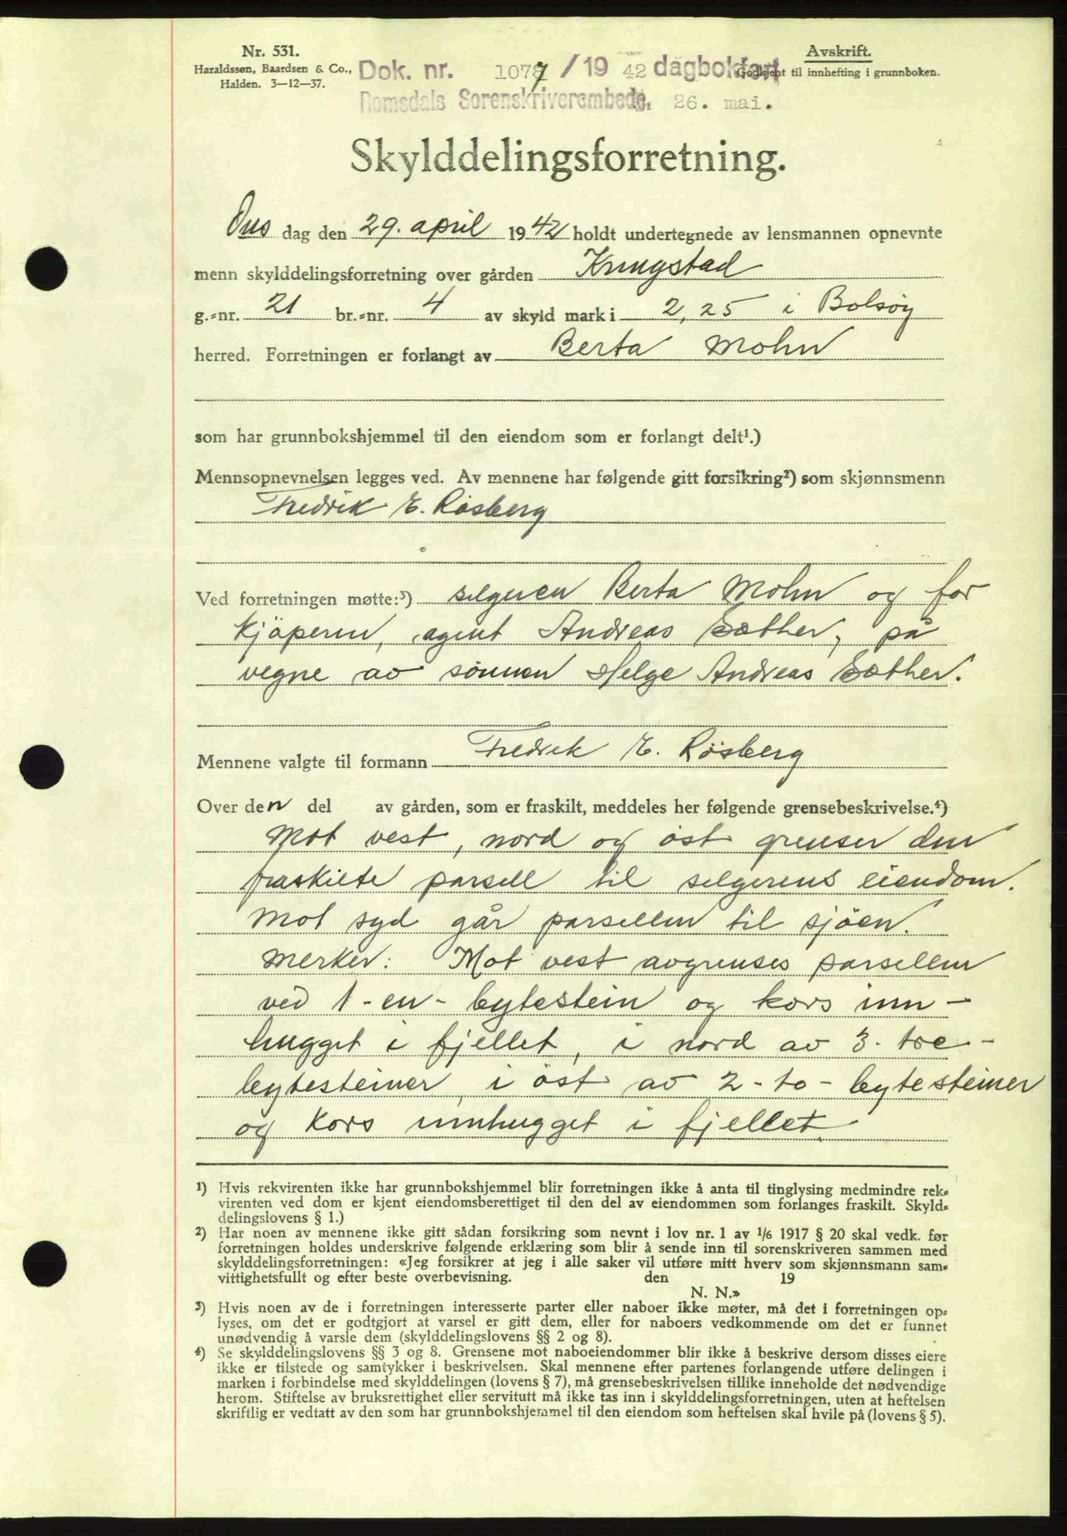 Nr. 531.
Haraldssen, Baardsen & Co.,
Halden. 3-12-37.
Avskrift.
Godkjent til innhefting i grunnboken.
Dok. nr. 1077/19 42 dagbokført
Romsdals Sorenskriverembede, 26. mai.
Skylddelingsforretning.
Ons dag den 29. april 1942 holdt undertegnede av lensmannen opnevnte
menn skylddelingsforretning over gården Kringstad
g.-nr. 21 br.-nr. 4 av skyld mark i 2,25 i Bolsøy
herred. Forretningen er forlangt av Berta Mohn
som har grunnbokshjemmel til den eiendom som er forlangt delt¹.)
Mennsopnevnelsen legges ved. Av mennene har følgende gitt forsikring²) som skjønnsmenn
Fredrik E. Røsberg
Ved forretningen møtte:³) selgeren Berta Mohn og for
kjöperen, agent Andreas Sæther, på
vegne av sönnen Helge Andreas Sæther.
Mennene valgte til formann Fredrik E. Røsberg
Over den del av gården, som er fraskilt, meddeles her følgende grensebeskrivelse.⁴)
Mot vest, nord og öst grenser den
fraskilte parsell til selgerens eiendom.
Mot syd går parsellen til sjöen.
Merker: Mot vest avgrenses parsellen
ved 1-en-bytestein og kors inn-
hugget i fjellet, i nord av 3-tre-
bytesteiner, i öst av 2-to-bytesteiner
og kors innhugget i fjellet.
1) Hvis rekvirenten ikke har grunnbokshjemmel blir forretningen ikke å anta til tinglysing medmindre rek-
virenten ved dom er kjent eiendomsberettiget til den del av eiendommen som forlanges fraskilt. Skyld-
delingslovens § 1.)
2) Har noen av mennene ikke gitt sådan forsikring som nevnt i lov nr. 1 av 1/6 1917 § 20 skal vedk. før
forretningen holdes underskrive følgende erklæring som blir å sende inn til sorenskriveren sammen med
skylddelingsforretningen: «Jeg forsikrer at jeg i alle saker vil utføre mitt hverv som skjønnsmann sam-
vittighetsfullt og efter beste overbevisning. den 19
N. N.»
3) Hvis noen av de i forretningen interesserte parter eller naboer ikke møter, må det i forretningen op-
lyses, om det er godtgjort at varsel er gitt dem, eller for naboers vedkommende om det er funnet
unødvendig å varsle dem (skylddelingslovens §§ 2 og 8).
4) Se skylddelingslovens §§ 3 og 8. Grensene mot naboeiendommer blir ikke å beskrive dersom disses eiere
ikke er tilstede og samtykker i beskrivelsen. Skal mennene efter partenes forlangende utføre delingen i
marken i forbindelse med skylddelingen (lovens § 7), må grensebeskrivelsen tillike inneholde det nødvendige
herom. Stiftelse av bruksrettighet eller servitutt må ikke tas inn i skylddelingsforretningen, uten at heftelsen
skriftlig er vedtatt av den som har grunnbokshjemmel til den eiendom som heftelsen skal hvile på (lovens § 5).